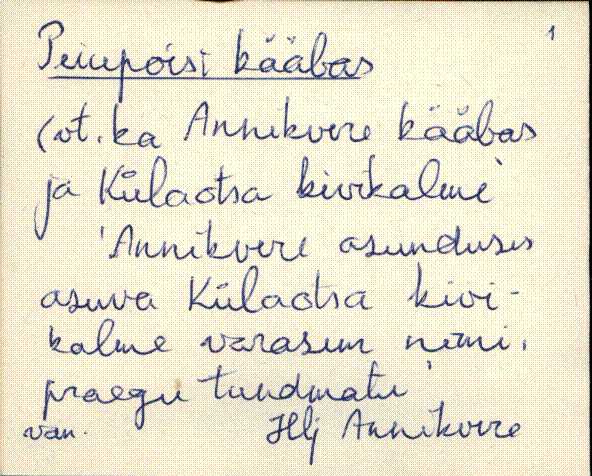 1
Peiepoisi kääbas
(vt. ka Annikvere kääbas
ja Külaotsa kivikalme
'Annikvere asunduses
asuva Külaotsa kivi-
kalme varasem nimi,
praegu tundmatu'
van. Hlj Annikvere